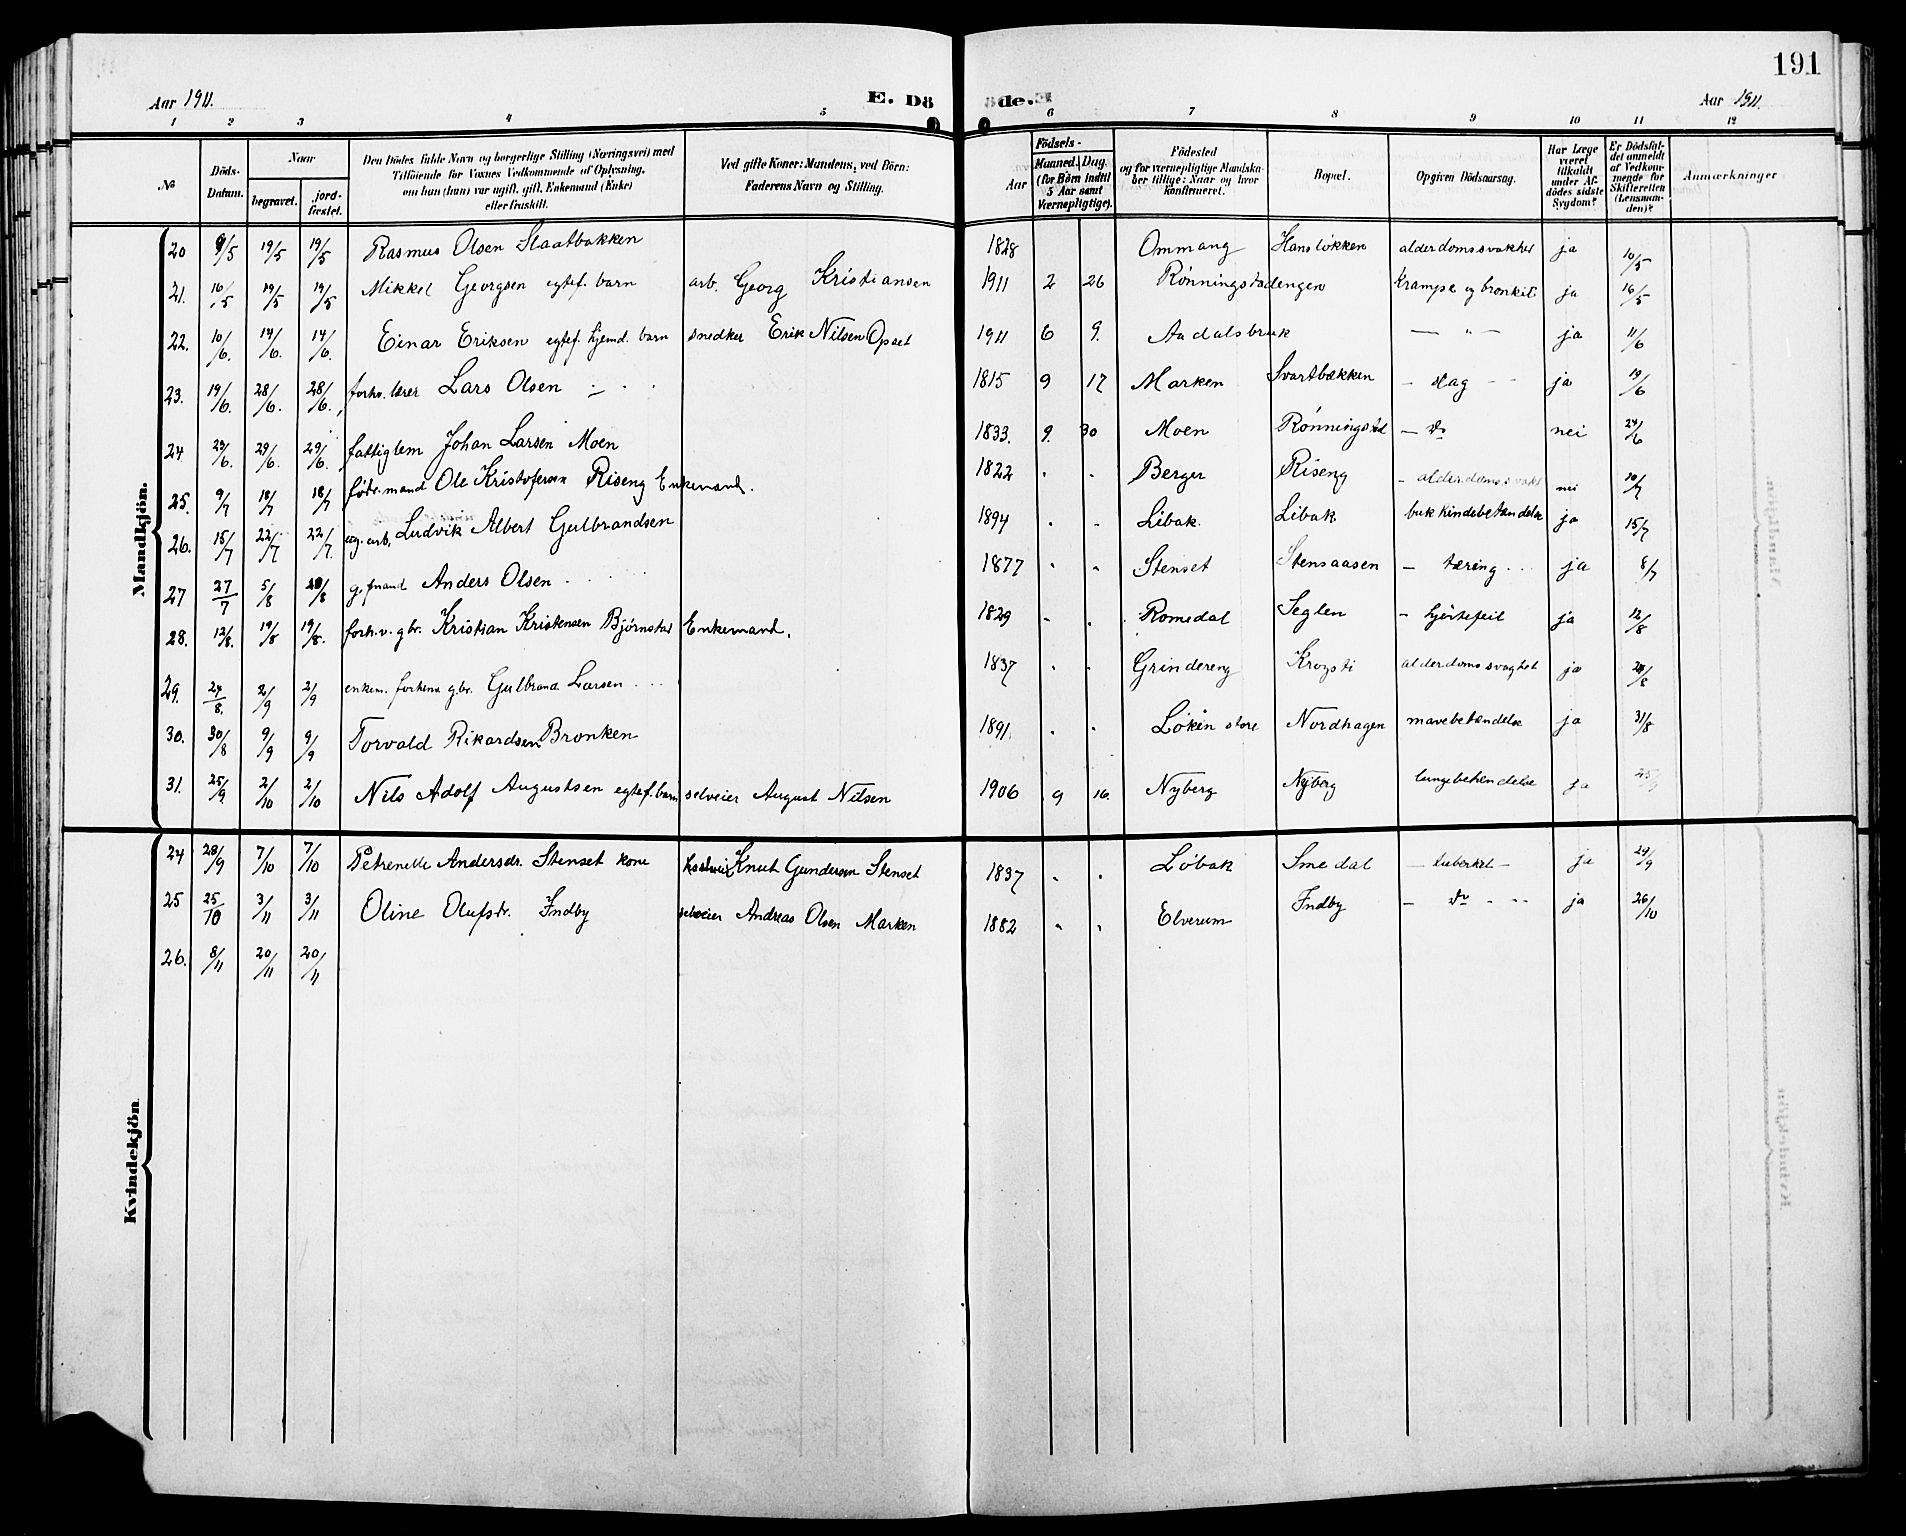 191
Aar 1911. E. Dö de. E Aar 1911.
1 2 3 4 5 6 7 8 9 10 11 12
No. Döds-Datum. Naar begravet. jord-fæstet. Den Dödes fulde Navn og borgerlige Stilling (Næringsvei) med Tilföiende for Voxnes Vedkommende af Oplysning, om han (hun) var ugift, gift, Enkemand (Enke) eller fraskilt. Ved gifte Koner: Mandens, ved Börn: Faderens Navn og Stilling. Födsels- Aar Maaned. Dag. (for Börn indtil 5 Aar samt Værnepligtige). Födested og for værnepligtige Mandskaber tillige: Naar og hvor konfirmeret. Bopæl. Opgiven Dödsaarsag. Har Læge været tilkaldt under Afdödes sidste Sygdom? Er Dödsfaldet anmeldt af Vedkommende for Skifteretten (Lensmanden)? Anmærkninger
Mandkjön.
20 9/5 19/5 19/5 Rasmus Olsen Slaatbakken 1828 Ommang Hansløkken alderdomssvakhet ja 10/5
21. 16/5 19/5 19/5 Mikkel Georgsen egtef. barn arb. Georg Kristiansen 1911 2 26 Rønningstadengen Krampe og bronkit ja 16/5
22. 10/6. 14/6. 14/6. Einar Eriksen egtef. hjemd. barn snedker Erik Nilsen Opset 1911 6 9. Aadalsbruk — " — ja 11/6
23. 19/6. 28/6. 28/6. forhv. lærer Lars Olsen 1815 9 17 Marken Svartbækken – slag – ja 19/6
24 23/6. 29/6. 29/6. fattiglem Johan Larsen Moen 1833. 9. 30 Moen Rønningstad — do nei 24/6
25. 9/7 18/7 18/7 føde.mand Ole Kristofersen Riseng Enkemand. 1822 " " Berger Riseng – alderdomssvakt nei 10/7
26. 15/7 22/7 22/7. ug. arb. Ludvik Albert Gulbrandsen 1894 " " Libak. Libak bukhindebetændelse ja 15/7
27 27/7 5/8 /8 Anders Olsen 1877 " " Stenset Stensaasen – tæring ja 8/7
28. 12/8. 19/8 19/8. forhv. gbr. Kristian Kristensen Bjørnstad Enkemand. 1829 " " Romedal Seglen – hjertefeil ja 12/8
29. 24/8. 2/9 2/9 enkem. forhenv gbr. Gulbrand Larsen 1837 " " Grindereng Krogsti alderdomssvaghet ja /8
30. 30/8 9/9 9/9 Torvald Rikardsen Bronken 1891. " " Løken store Nordhagen mavebetændelse ja 31/8
31. 25/9 2/10 2/10 Nils Adolf Augustsen egtef. barn selveier August Nilsen 1906 9 16. Nyberg Nyberg lungebetendelse ja 25/9
Kvindekjön
24 28/9 7/10 7/10 Petrenelle Andersdr. Stenset kone Knut Gundersen Stenset 1837 " " Løbak Smedal – tuberkel – ja 29/9
25 25/10 3/11 3/11 Oline Olufsdr. Indby selveier Andreas Olsen Marken 1882 " " Elverum Indby — do – " ja 26/10
26. 8/11 20/11 20/11